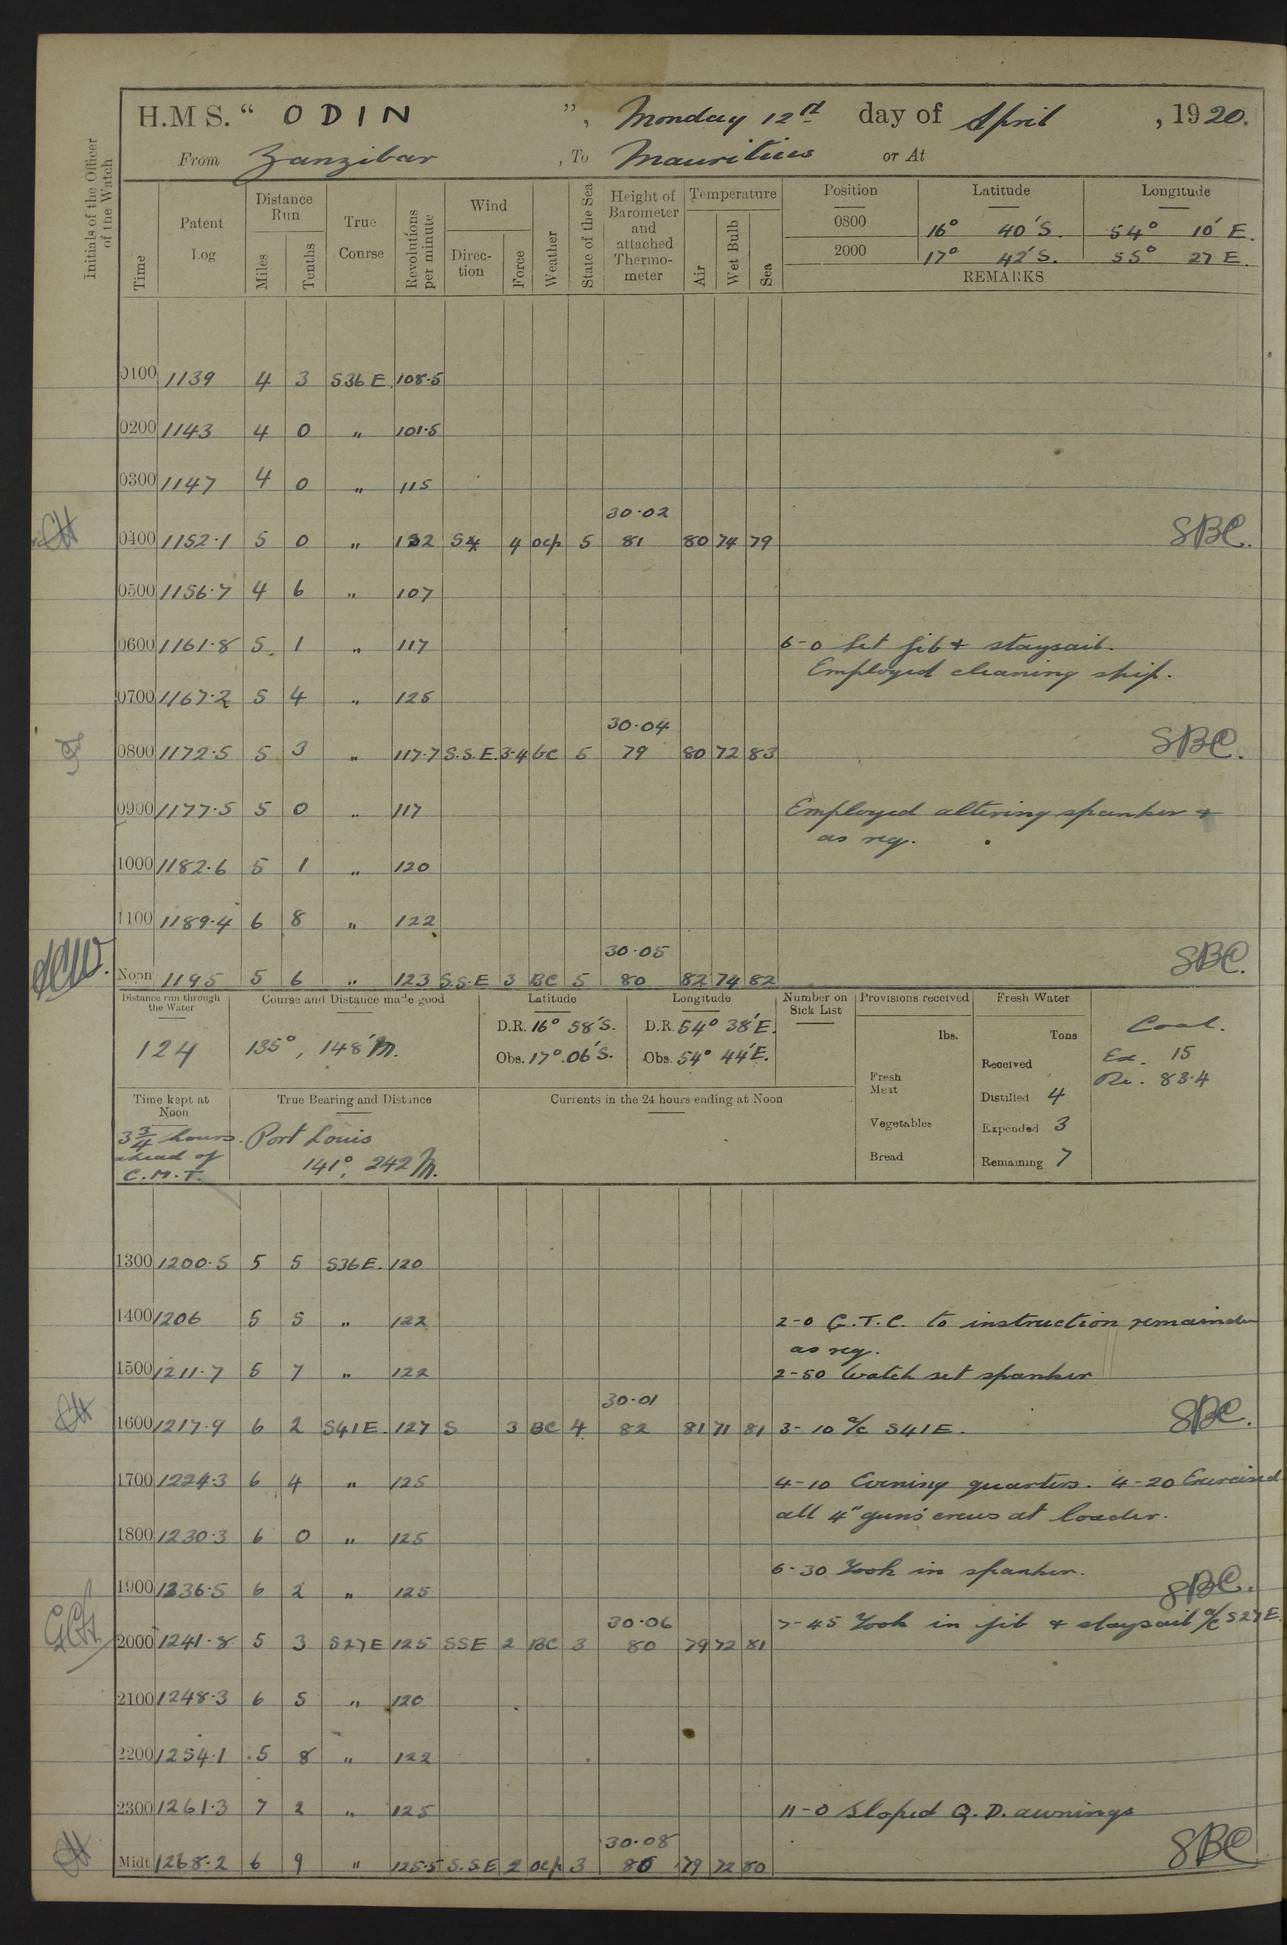 H.M S. “ ODIN ”, Monday 12th day of April, 1920.
From Zanzibar, To Mauritius or At
Initials of the Officer of the Watch
Time
Patent Log
Distance Run
Miles
Tenths
True Course
Revolutions per minute
Wind
Direction
Force
Weather
State of the Sea
Height of Barometer and attached Thermometer
Temperature
Air
Wet Bulb
Sea
Position Latitude Longitude
0800 16° 40′ S. 54° 10′ E.
2000 17° 42′ S. 55° 27 E.
REMARKS
0100 1139 4 3 S36E 108·5
0200 1143 4 0 " 101·5
0300 1147 4 0 " 115
30·02
0400 1152·1 5 0 " 132 4 ocp 5 81 80 74 79 SBC.
0500 1156·7 4 6 " 107
0600 1161·8 5 1 " 117 6-0 Set jib & staysail.
Employed cleaning ship.
0700 1167·2 5 4 " 125
30·04
0800 1172·5 5 3 " 117·7 S.S.E. 3-4 bc 5 79 80 72 83 SBC.
0900 1177·5 5 0 " 117 Employed altering spanker &
as req.
1000 1182·6 5 1 " 120
1100 1189·4 6 8 " 122
30·05
Noon 1195 5 6 " 123 S.S.E 3 BC 5 80 82 74 82 SBC.
Distance run through the Water
124
Course and Distance made good
135°, 148′ M.
Latitude
D.R. 16° 58′ S.
Obs. 17° 06′ S.
Longitude
D.R. 54° 38′ E.
Obs. 54° 44′ E.
Number on Sick List
Provisions received
lbs.
Fresh Meat
Vegetables
Bread
Fresh Water
Tons
Received
Distilled 4
Expended 3
Remaining 7
Coal.
Ex. 15
Re. 83·4
Time kept at Noon
3¾ hours ahead of G.M.T.
True Bearing and Distance
Port Louis
141°, 242 M.
Currents in the 24 hours ending at Noon
1300 1200·5 5 5 S36E. 120
1400 1206 5 5 " 122 2-0 G.T.C. to instruction remainder
as req.
1500 1211·7 5 7 " 122 2-50 Watch set spanker
30·01
1600 1217·9 6 2 S41E. 127 S 3 BC 4 82 81 71 81 3-10 a/c S41E. SBC.
1700 1224·3 6 4 " 125 4-10 Evening quarters. 4-20 Exercised
all 4" guns' crews at loader.
1800 1230·3 6 0 " 125
6-30 Took in spanker.
1900 1236·5 6 2 " 125 SBC.
30·06
7-45 Took in jib & staysail a/c S27E.
2000 1241·8 5 3 S27E 125 SSE 2 BC 3 80 79 72 81
2100 1248·3 6 5 " 120
2200 1254·1 5 8 " 122
2300 1261·3 7 2 " 125 11-0 Sloped Q.D. awnings
30·08
Midt 1268·2 6 9 " 125·5 S.S.E 2 ocp 3 80 79 72 80 SBC